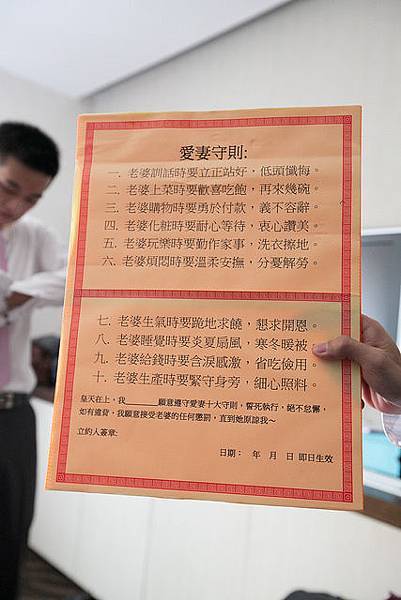 愛妻守則:
一. 老婆訓話時要立正站好，低頭懺悔。
二. 老婆上菜時要歡喜吃飽，再來幾碗。
三. 老婆購物時要勇於付款，義不容辭。
四. 老婆化粧時要耐心等待，衷心讚美。
五. 老婆玩樂時要勤作家事，洗衣擦地。
六. 老婆煩悶時要溫柔安撫，分憂解勞。
七. 老婆生氣時要跪地求饒，懇求開恩。
八. 老婆睡覺時要炎夏扇風，寒冬暖被。
九. 老婆給錢時要含淚感激，省吃儉用。
十. 老婆生產時要緊守身旁，細心照料。
皇天在上，我______願意遵守愛妻十大守則，誓死執行，絕不怠懈，
如有違背，我願意接受老婆的任何懲罰，直到她原諒我～
立約人簽章:
日期： 年 月 日 即日生效